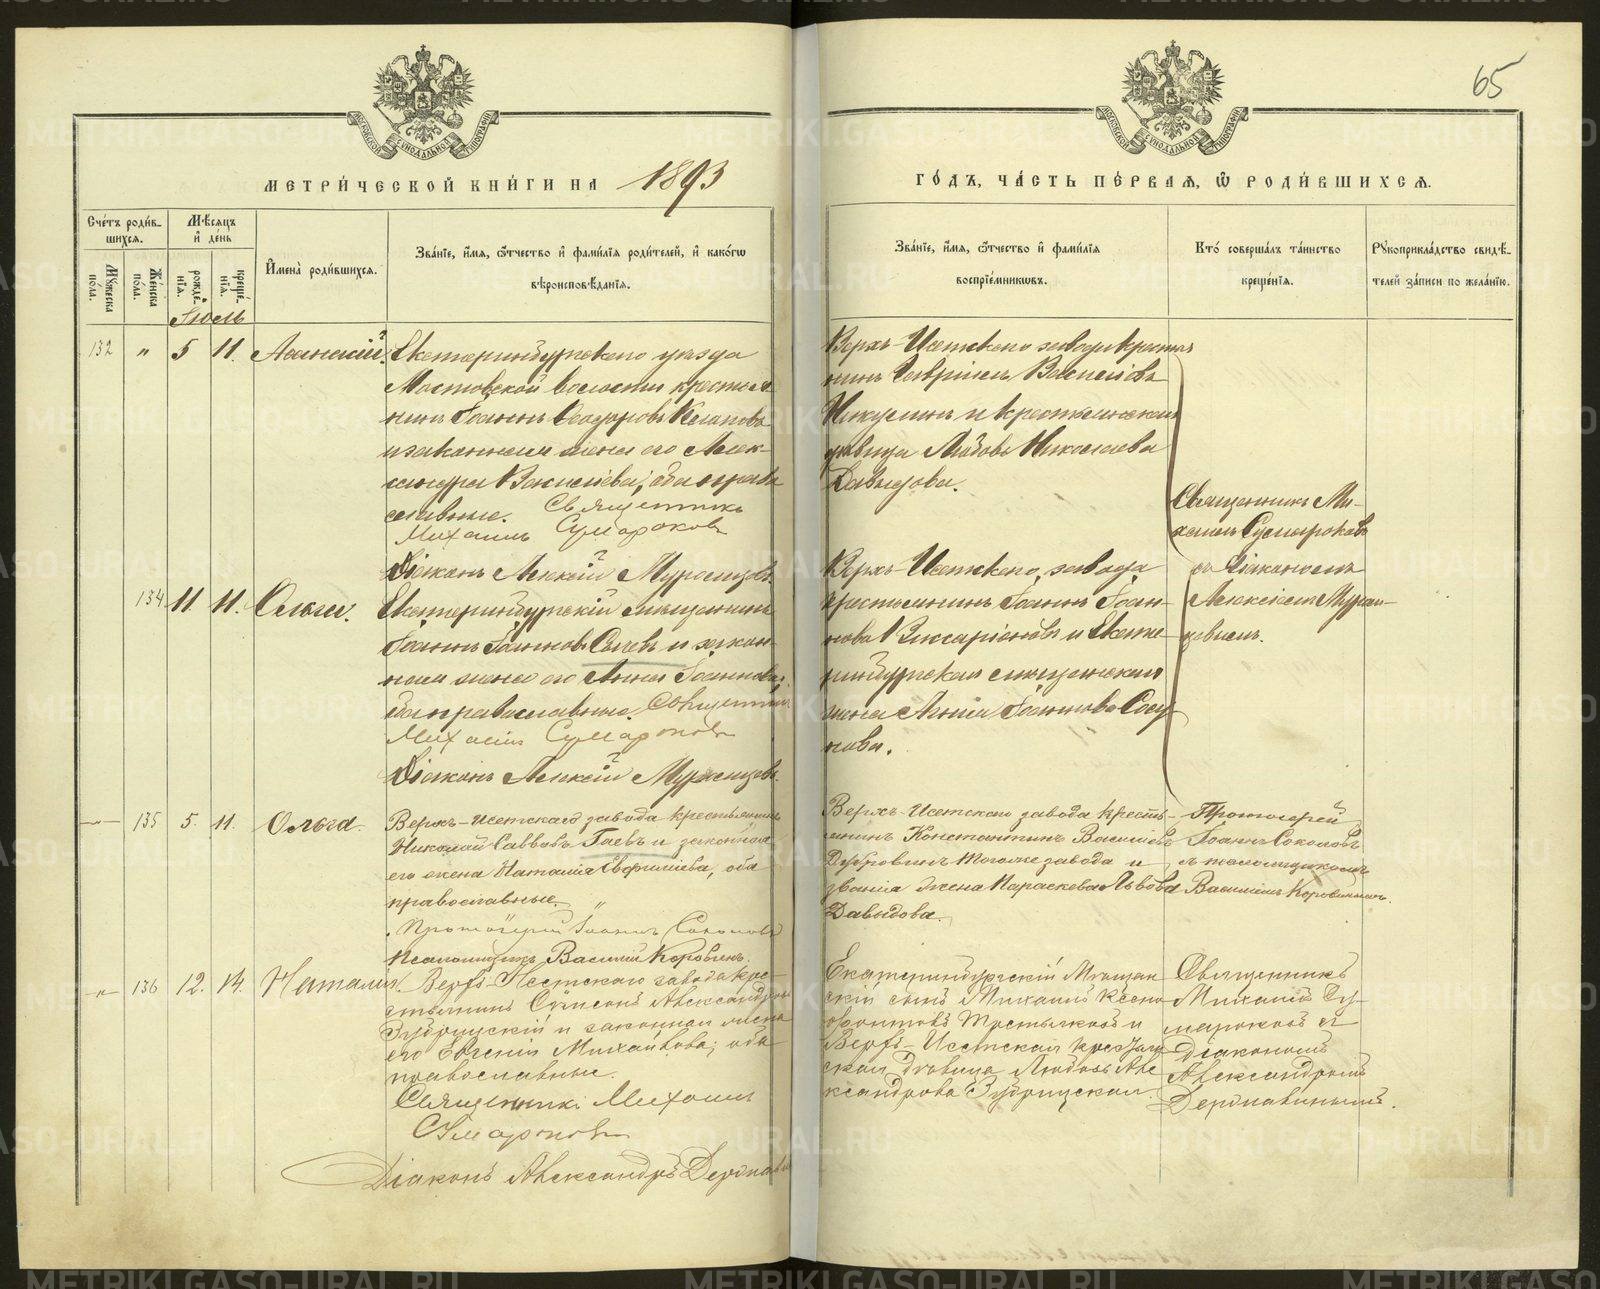 65
МЕТРИЧЕСКОЙ КНИГИ НА 1893
ГОДЪ, ЧАСТЬ ПЕРВАЯ, Ѡ РОДИВШИХСЯ.
Счетъ родившихся.
Мѣсяцъ и день
Мужеска пола.
Женска пола.
рожденія.
крещенія.
Имена родившихся.
Званіе, имя, отчество и фамилія родителей, и какого
вѣроисповѣданія.
Званіе, имя, отчество и фамилія
воспріемниковъ.
Кто совершалъ таинство
крещенія.
Рукоприкладство свидѣтелей записи по желанію.
Іюль
132 " 5 11. Аѳанасій.
Екатеринбургскаго уѣзда
Мостовской волости крестья-
нинъ Іоаннъ Ѳеодоровъ
и законная жена его Алек-
сандра Васильева; оба право
славные. Священникъ
Михаилъ Сумароковъ
Діаконъ Алексій
Верхъ-Исетскаго завода крестья
нинъ Гавріилъ Васильевъ
Никулинъ и крестьянская
дѣвица Любовь Николаева
Давыдова.
Священникъ Ми-
хаилъ Сумароковъ
съ діакономъ
Алексіемъ
134 11 11. Ольга.
Екатеринбургскій мѣщанинъ
Іоаннъ Іоанновъ Сычевъ и закон-
ная жена его Анна Іоаннова;
оба православные. Священникъ
Михаилъ Сумароковъ
Діаконъ Алексій
Верхъ-Исетскаго завода
крестьянинъ Іоаннъ Іоан-
новъ Виссаріоновъ и Екате-
ринбургская мѣщанская
жена Анна Іоаннова Сосу-
нова.
135 5. 11. Ольга.
Верхъ-Исетскаго завода крестьянинъ
Николай Саввовъ Гаевъ и законная
его жена Наталія Евфиміева, оба
православные.
Протоіерей Іоаннъ Соколовъ
Псаломщикъ Василій Коровинъ.
Верхъ-Исетскаго завода кресть-
янинъ Константинъ Васильевъ
Дубровинъ тогоже завода и
званія жена Параскева Львова
Давыдова.
Протоіерей
Іоаннъ Соколовъ
съ псаломщикомъ
Василіемъ Коровинымъ.
" 136 12. 14. Наталія.
Верхъ-Исетскаго завода кре-
стьянинъ Симеонъ Александровъ
Зубрицкій и законная жена
его Евгенія Михайлова; оба
православные.
Священникъ Михаилъ
Сумароковъ
Діаконъ Александръ
Екатеринбургскій Мѣщан
скій сынъ Михаилъ Ксено-
фонтовъ и
Верхъ-Исетская крестьян
ская дѣвица Любовь Але
ксандрова Зубрицкая.
Священникъ
Михаилъ Су-
мароковъ съ
Діакономъ
Александромъ
Державинымъ.